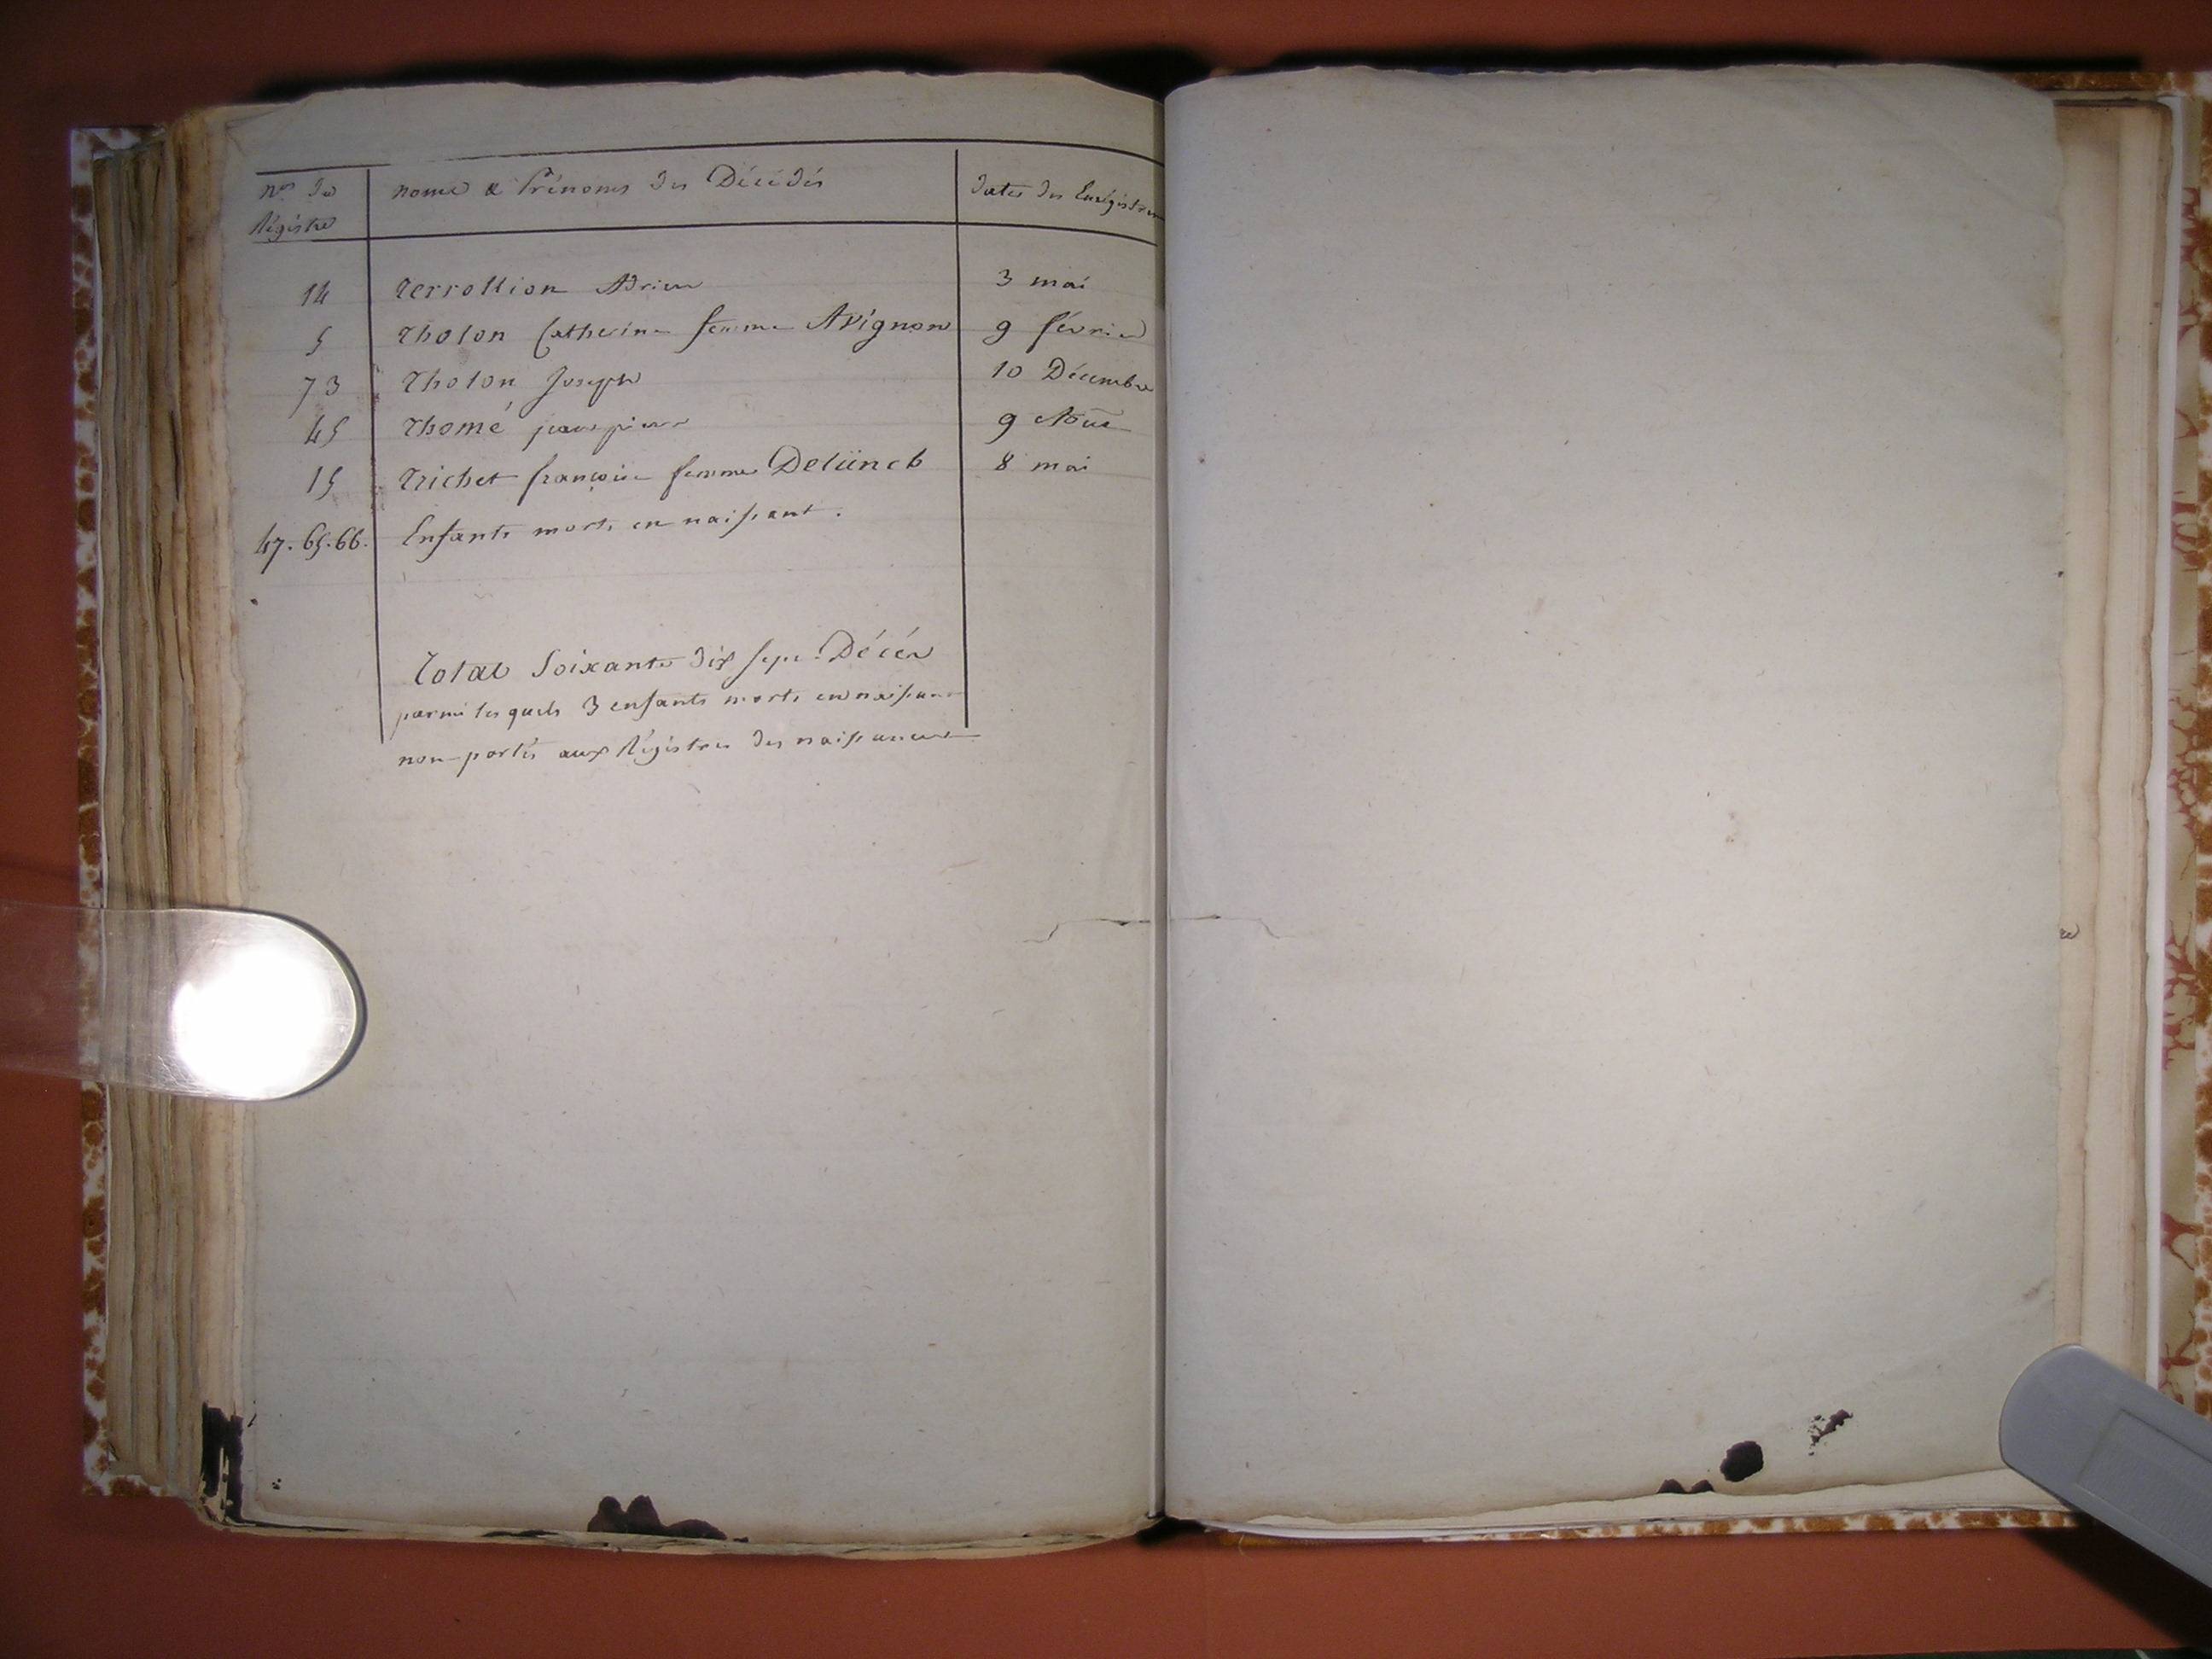 Nos du Régistre | noms & Prénoms des Décédés | dates des Enrégistrem
14 | Terrollion Adrien | 3 mai
5 | Tholon Catherine femme Avignon | 9 février
73 | Tholon Joseph | 10 Décembre
45 | Thomé jean pierre | 9
15 | Trichet françoise femme | 8 mai
47. 65. 66. | Enfants morts en naissant.
Total Soixante dix sept Décès
parmi lesquels 3 enfants morts en naissant
non-portés aux Régistres des naissances